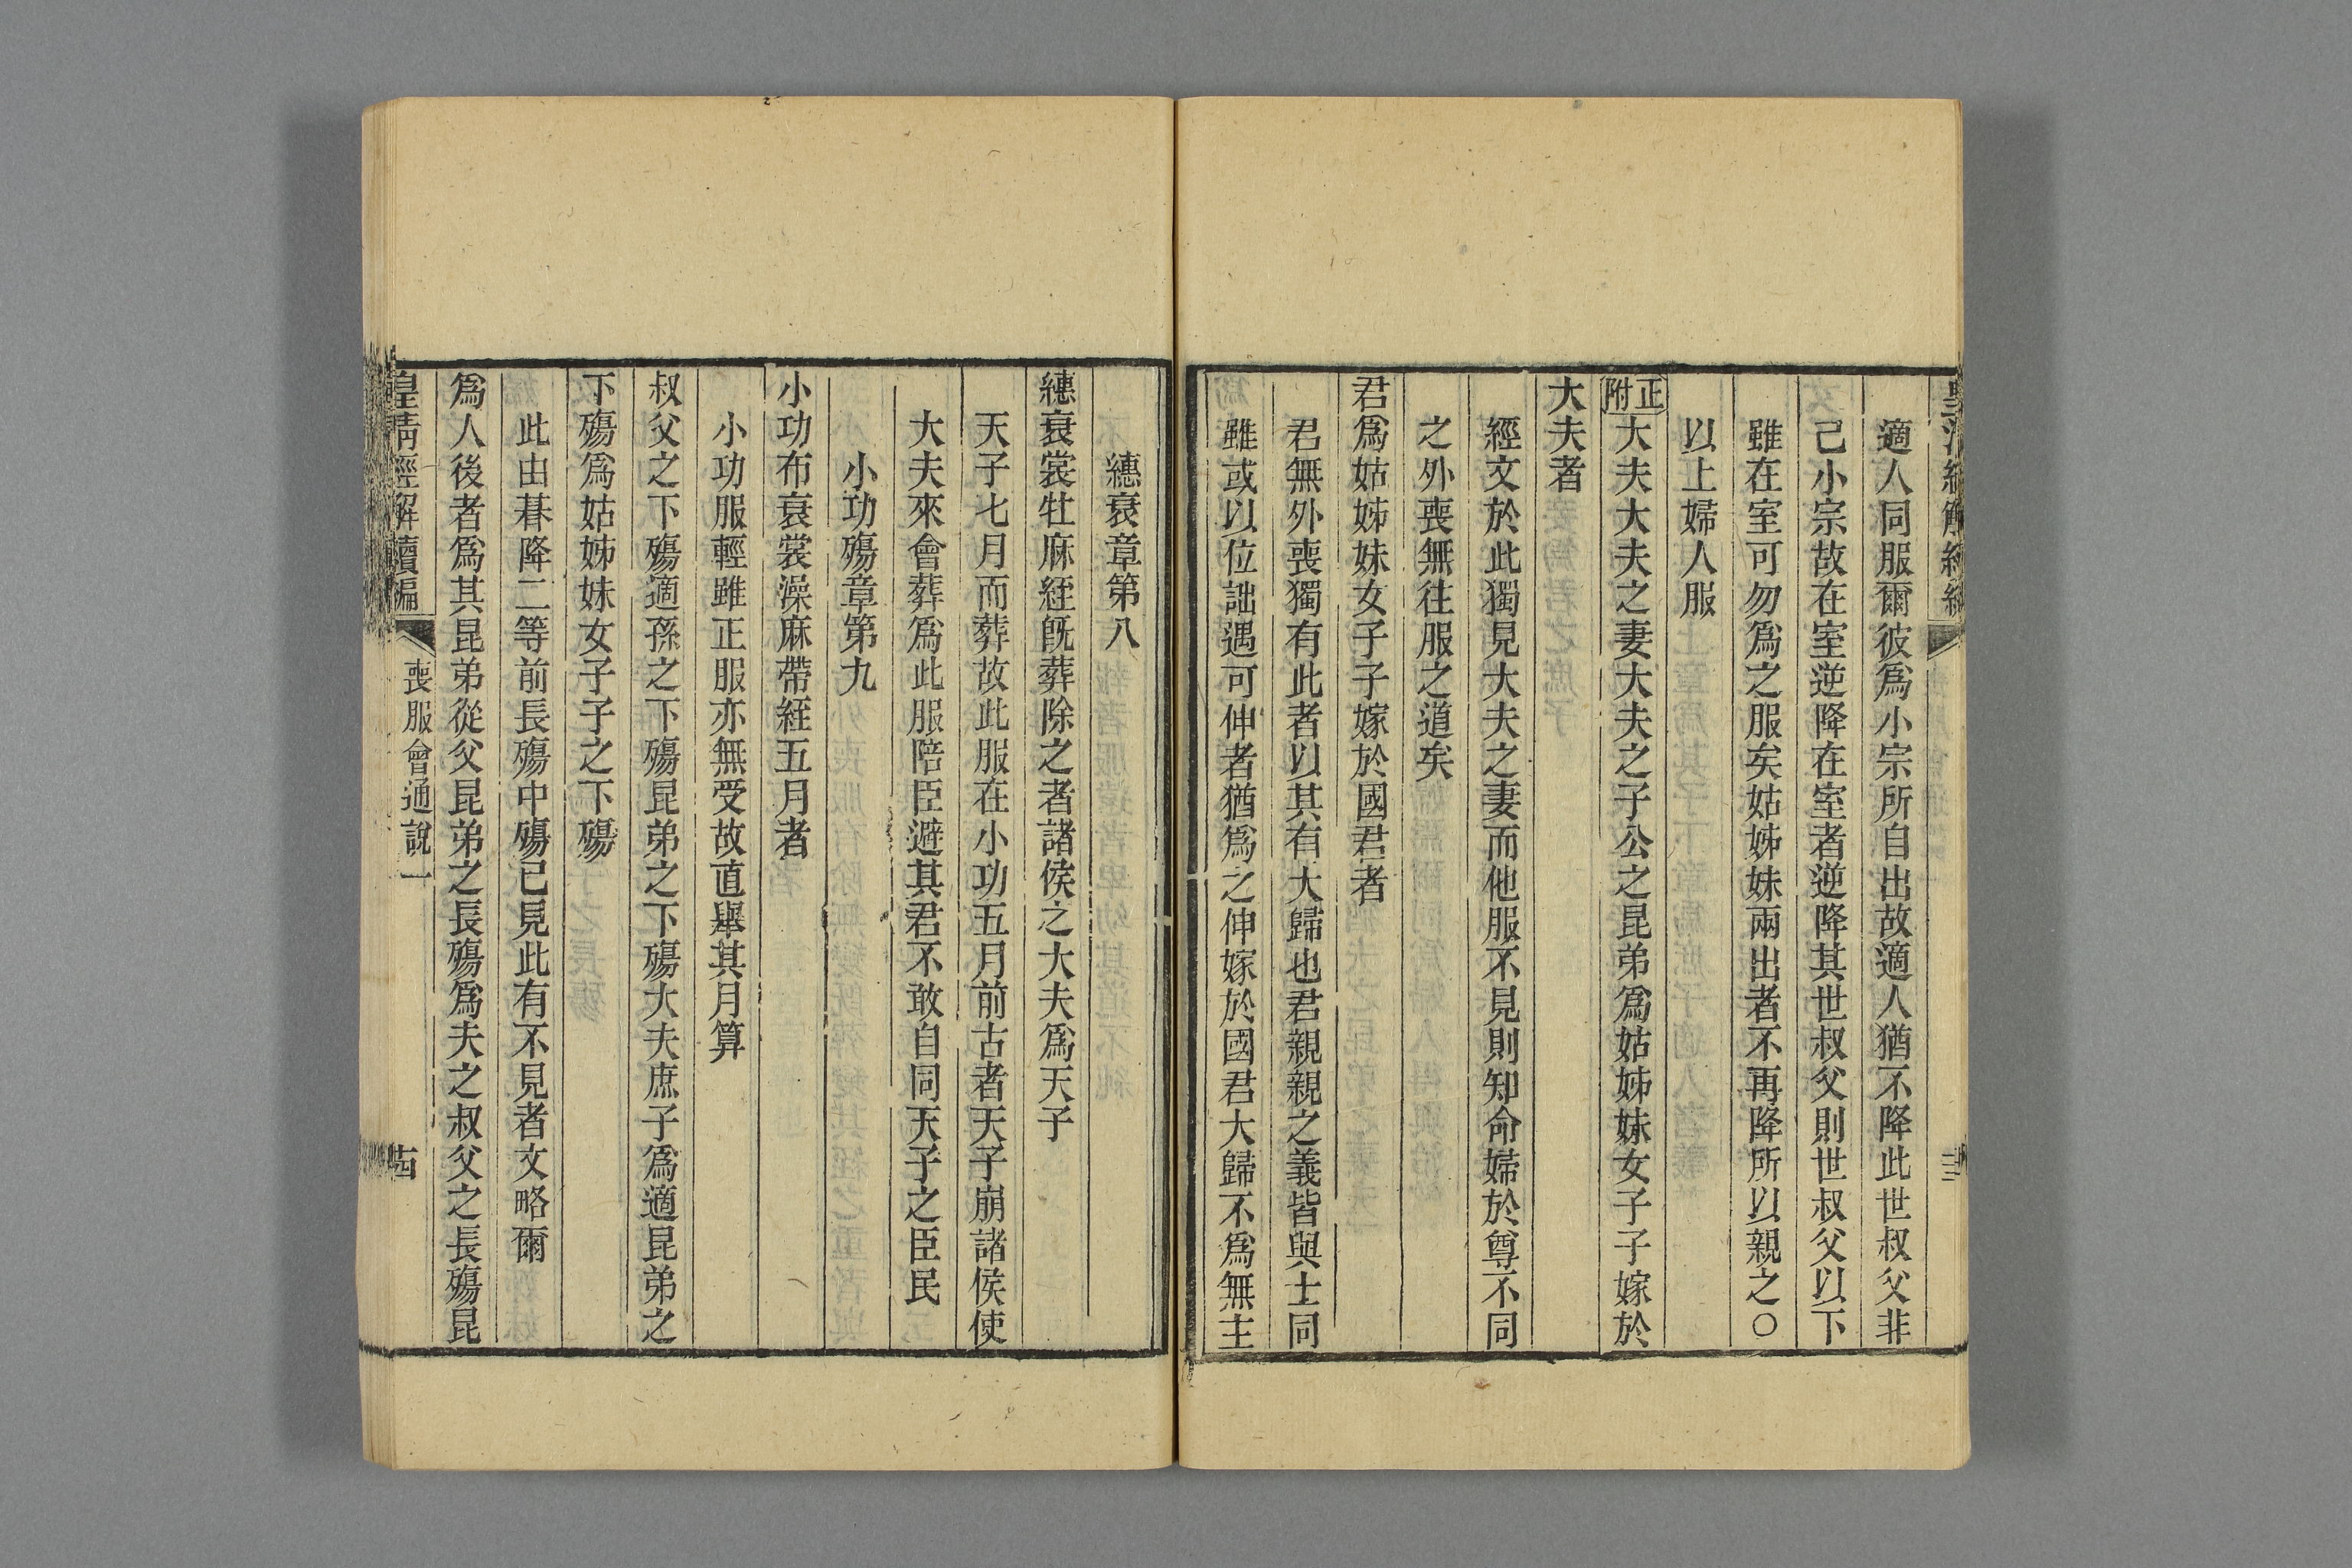 適人同服爾彼爲小宗所自出故適人猶不降此世叔父非
己小宗故在室逆降在室者逆降其世叔父則世叔父以下
雖在室可勿爲之服矣姑姊妹兩出者不再降所以親之〇
以上婦人服
正附大夫大夫之妻大夫之子公之昆弟爲姑姊妹女子子嫁於
大夫者
經文於此獨見大夫之妻而他服不見則知命婦於尊不同
之外喪無往服之道矣
君爲姑姊妹女子子嫁於國君者
君無外喪獨有此者以其有大歸也君親親之義皆與士同
雖或以位詘遇可伸者猶爲之伸嫁於國君大歸不爲無主
繐衰章第八
繐衰裳牡麻絰旣葬除之者諸侯之大夫爲天子
天子七月而葬故此服在小功五月前古者天子崩諸侯使
大夫來會葬爲此服陪臣避其君不敢自同天子之臣民
小功殤章第九
小功布衰裳澡麻帶絰五月者
小功服輕雖正服亦無受故直舉其月算
叔父之下殤適孫之下殤昆弟之下殤大夫庶子爲適昆弟之
下殤爲姑姊妹女子子之下殤
此由朞降二等前長殤中殤已見此有不見者文略爾
爲人後者爲其昆弟從父昆弟之長殤爲夫之叔父之長殤昆
皇清經解續編
喪服會通說一